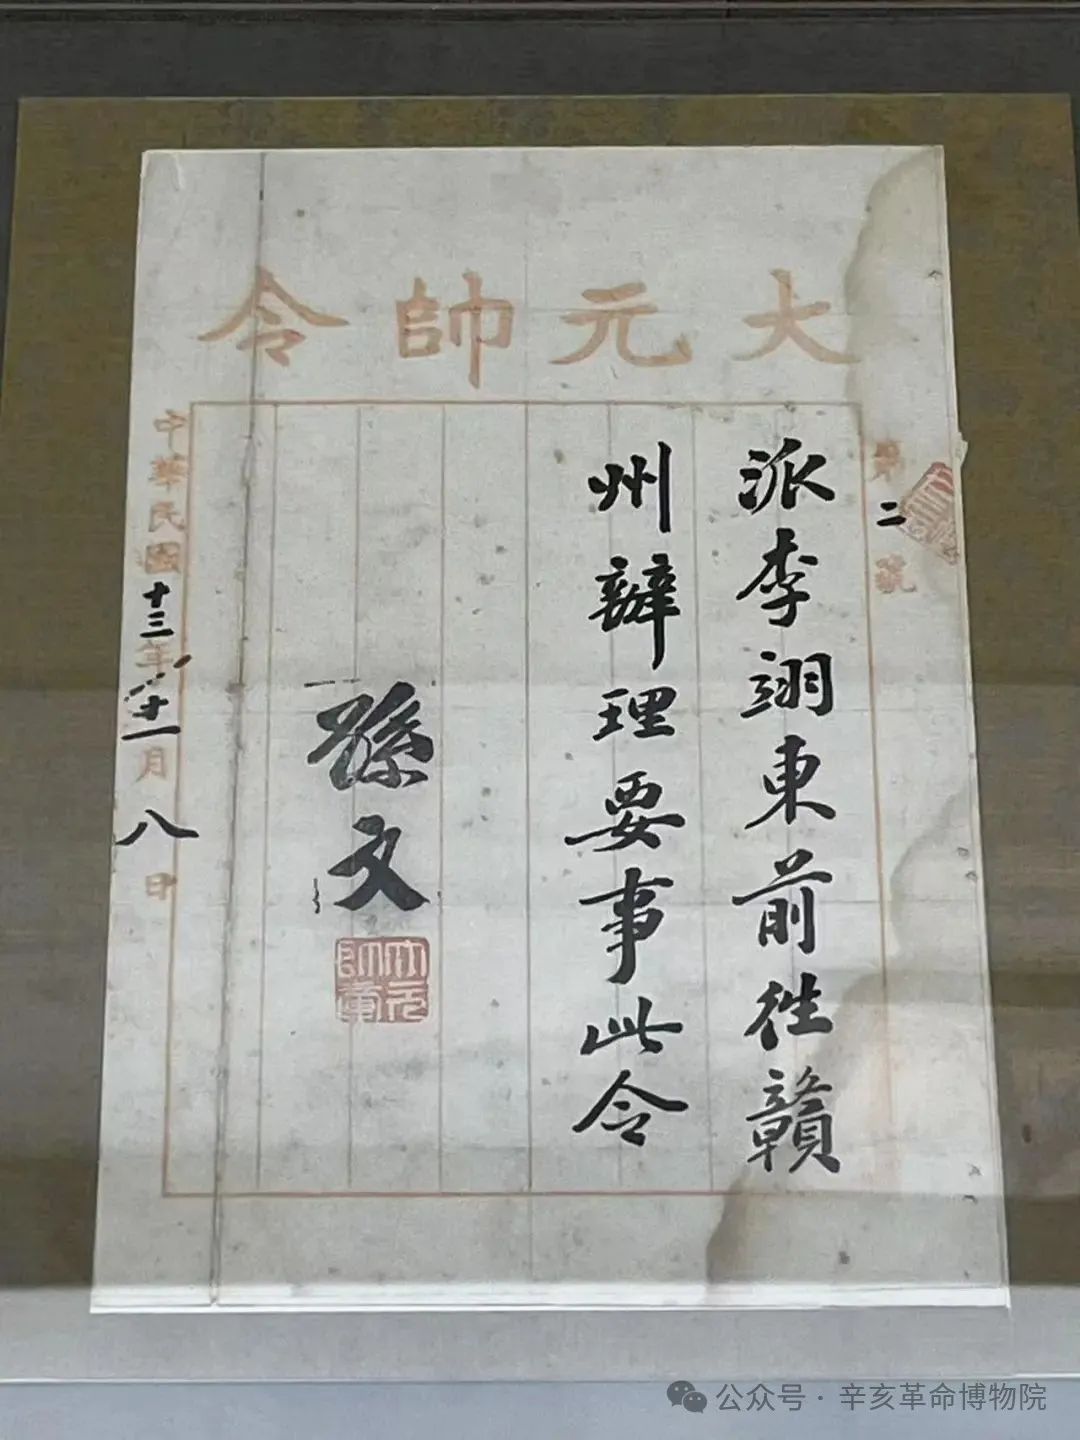 大元帥令
第二號
派李翊東前往贛
州辦理要事此令
孫文
大元帥章
中華民國十三年十一月八日
公众号·辛亥革命博物院